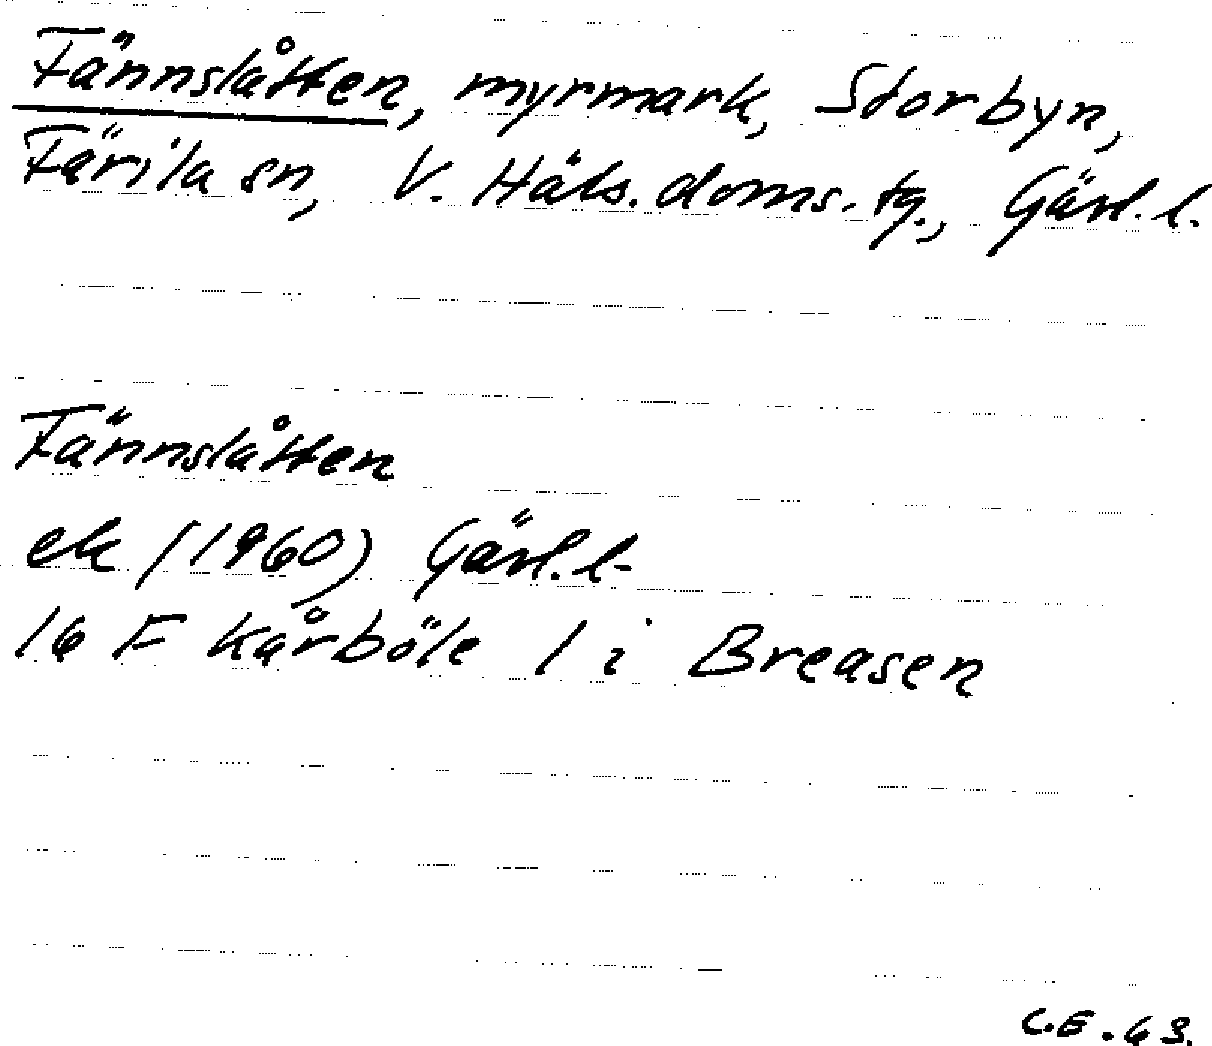 Fännslåtten, myrmark, Storbyn,
Färila sn, V. Häls. doms. tg., Gävl. l.
Fännslåtten
ek (1960) Gävl. l.
16 F Kårböle 1 i Breasen
C.E. 63.